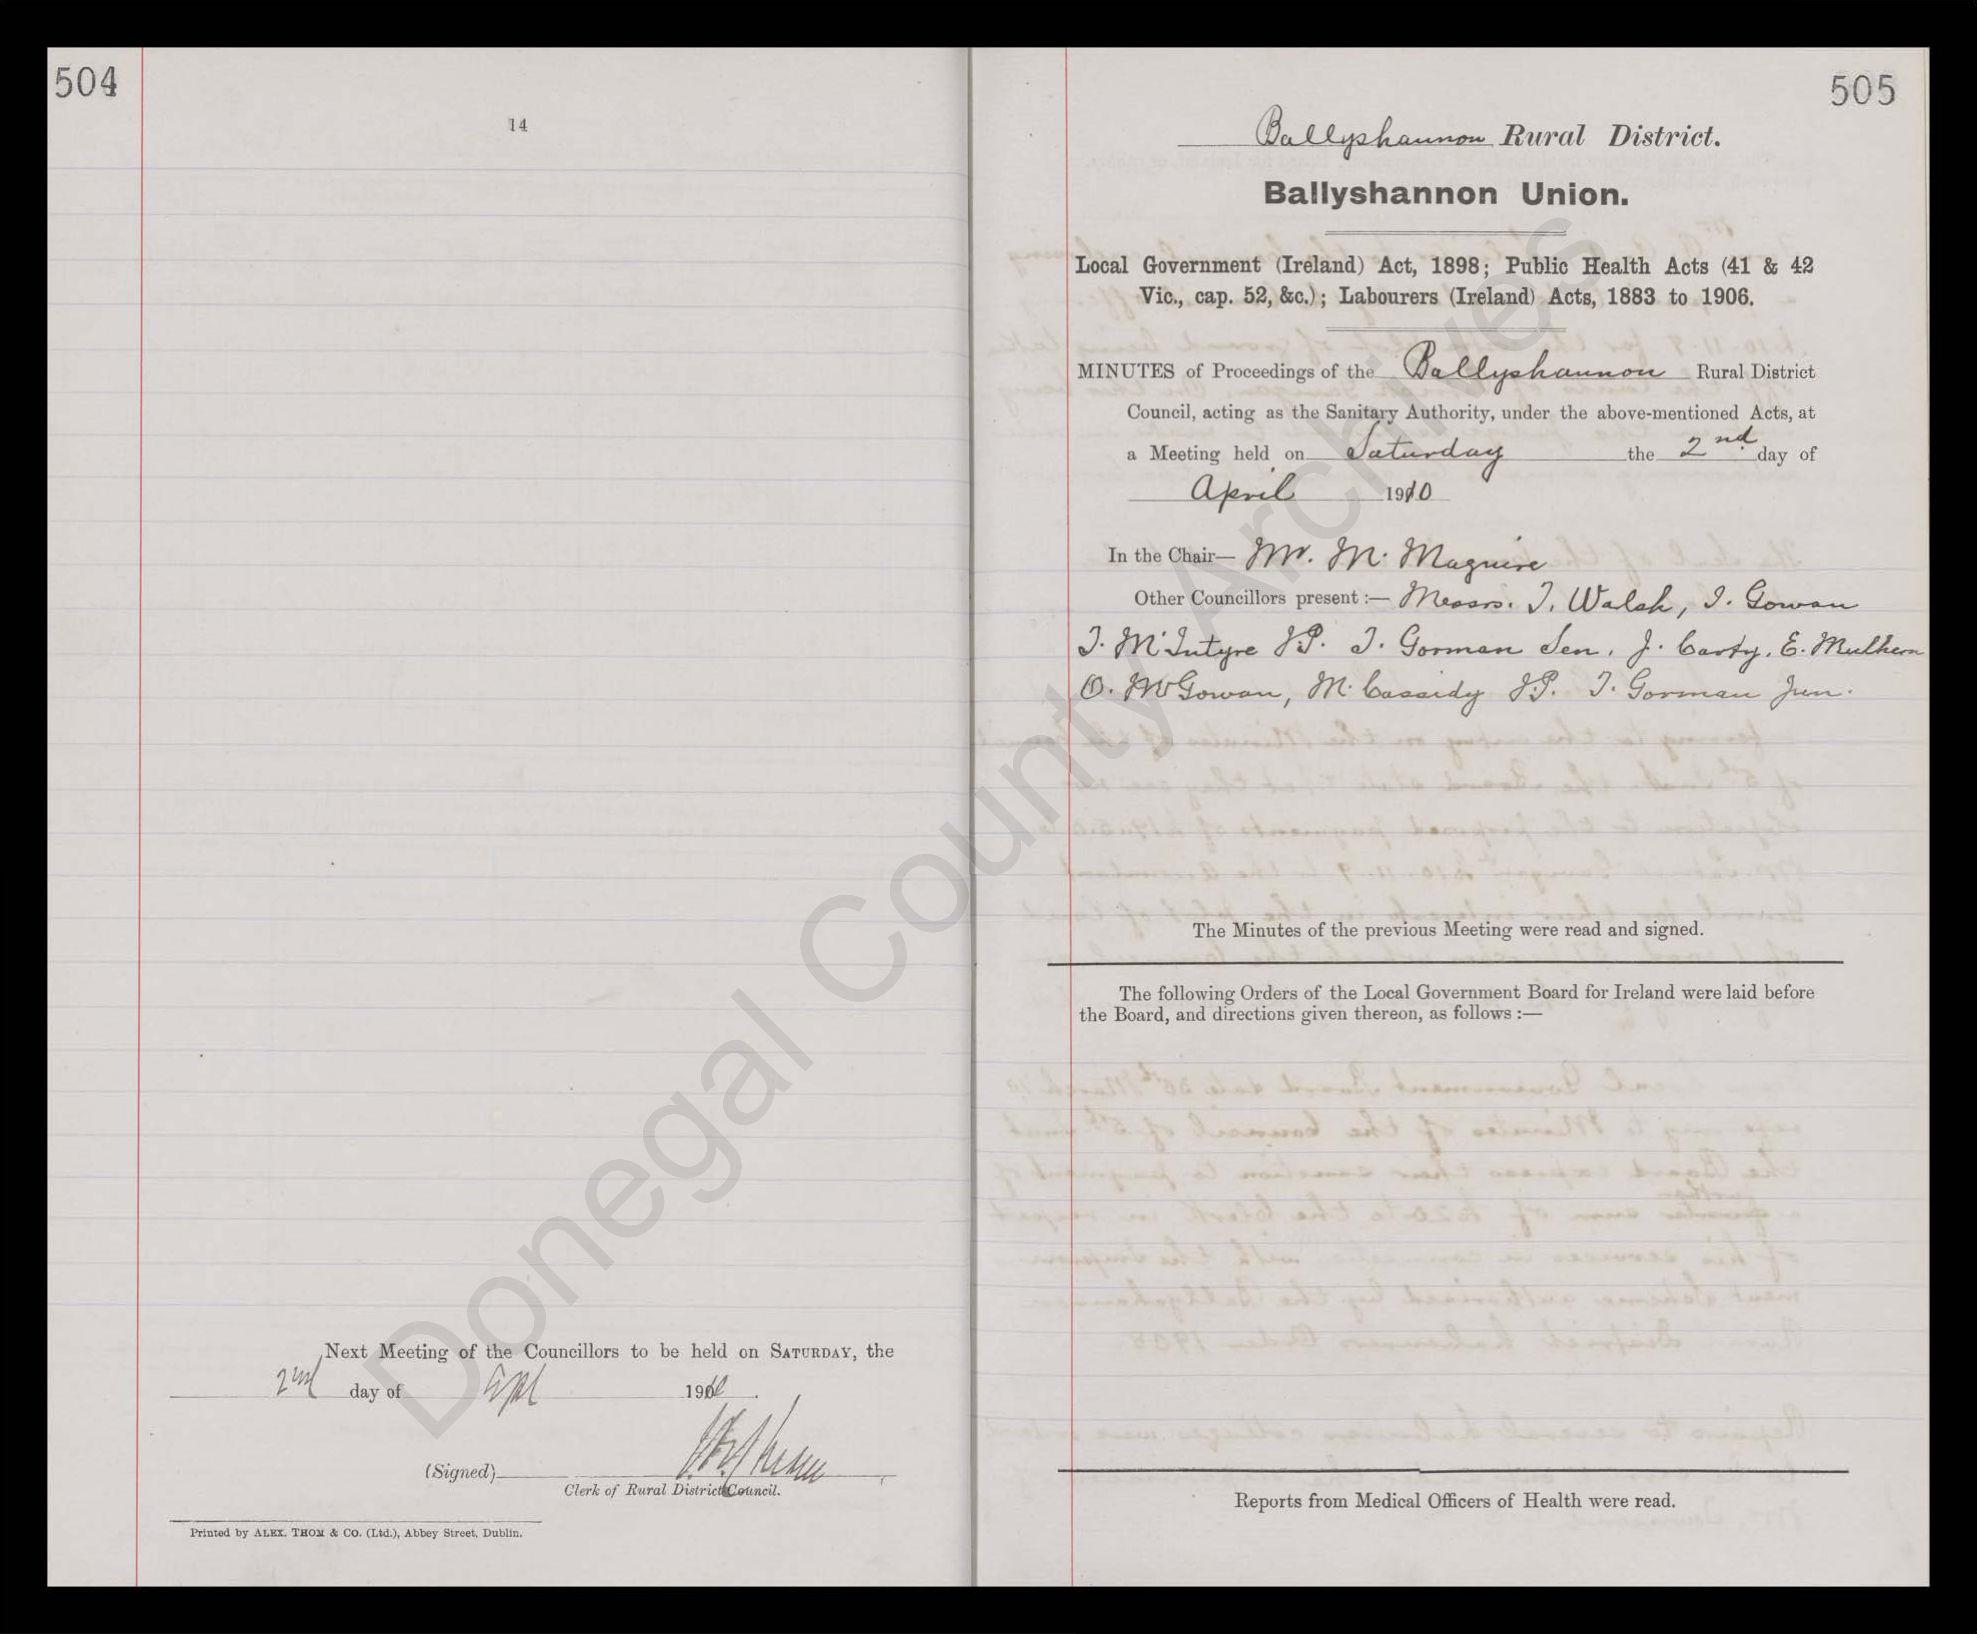 504
14
Next Meeting of the Councillors to be held on SATURDAY, the
2nd day of Apl 1910.
(Signed)
Clerk of Rural District Council.
Printed by ALEX. THOM & CO. (Ltd.), Abbey Street, Dublin.
505
Ballyshannon Rural District.
Ballyshannon Union.
Local Government (Ireland) Act, 1898; Public Health Acts (41 & 42
Vic., cap. 52, &c.); Labourers (Ireland) Acts, 1883 to 1906.
MINUTES of Proceedings of the Ballyshannon Rural District
Council, acting as the Sanitary Authority, under the above-mentioned Acts, at
a Meeting held on Saturday the 2nd day of
April 1910
In the Chair— Mr. M. Maguire
Other Councillors present :— Messrs. T. Walsh, I. Gowan
T. McIntyre J.P. T. Gorman Sen. J. Carty, E. Mulhern
O. McGowan, M. Cassidy J.P. T. Gorman Jun.
The Minutes of the previous Meeting were read and signed.
The following Orders of the Local Government Board for Ireland were laid before
the Board, and directions given thereon, as follows :—
Reports from Medical Officers of Health were read.
Donegal County Archives